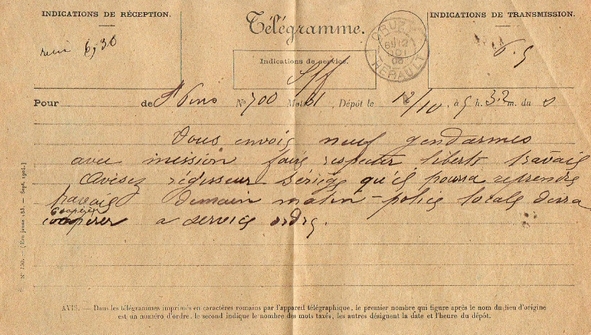 INDICATIONS DE RÉCEPTION.
Télégramme.
INDICATIONS DE TRANSMISSION.
6,30
Indications de service.
Off
CRUZY
HÉRAULT
Pour de St Pons N° 700 Mots 31 Dépôt le 12/10 à 5 h 32 m. du s
Vous envoie neuf gendarmes
avec mission faire respecter liberté travail
Avisez régisseur Sériège qu'il pourra reprendre
travail demain matin – police locale devra
coopérer
a service ordre.
AVIS. — Dans les télégrammes imprimés en caractères romains par l'appareil télégraphique, le premier nombre qui figure après le nom du lieu d'origine
est un numéro d'ordre, le second indique le nombre des mots taxés, les autres désignent la date et l'heure du dépôt.